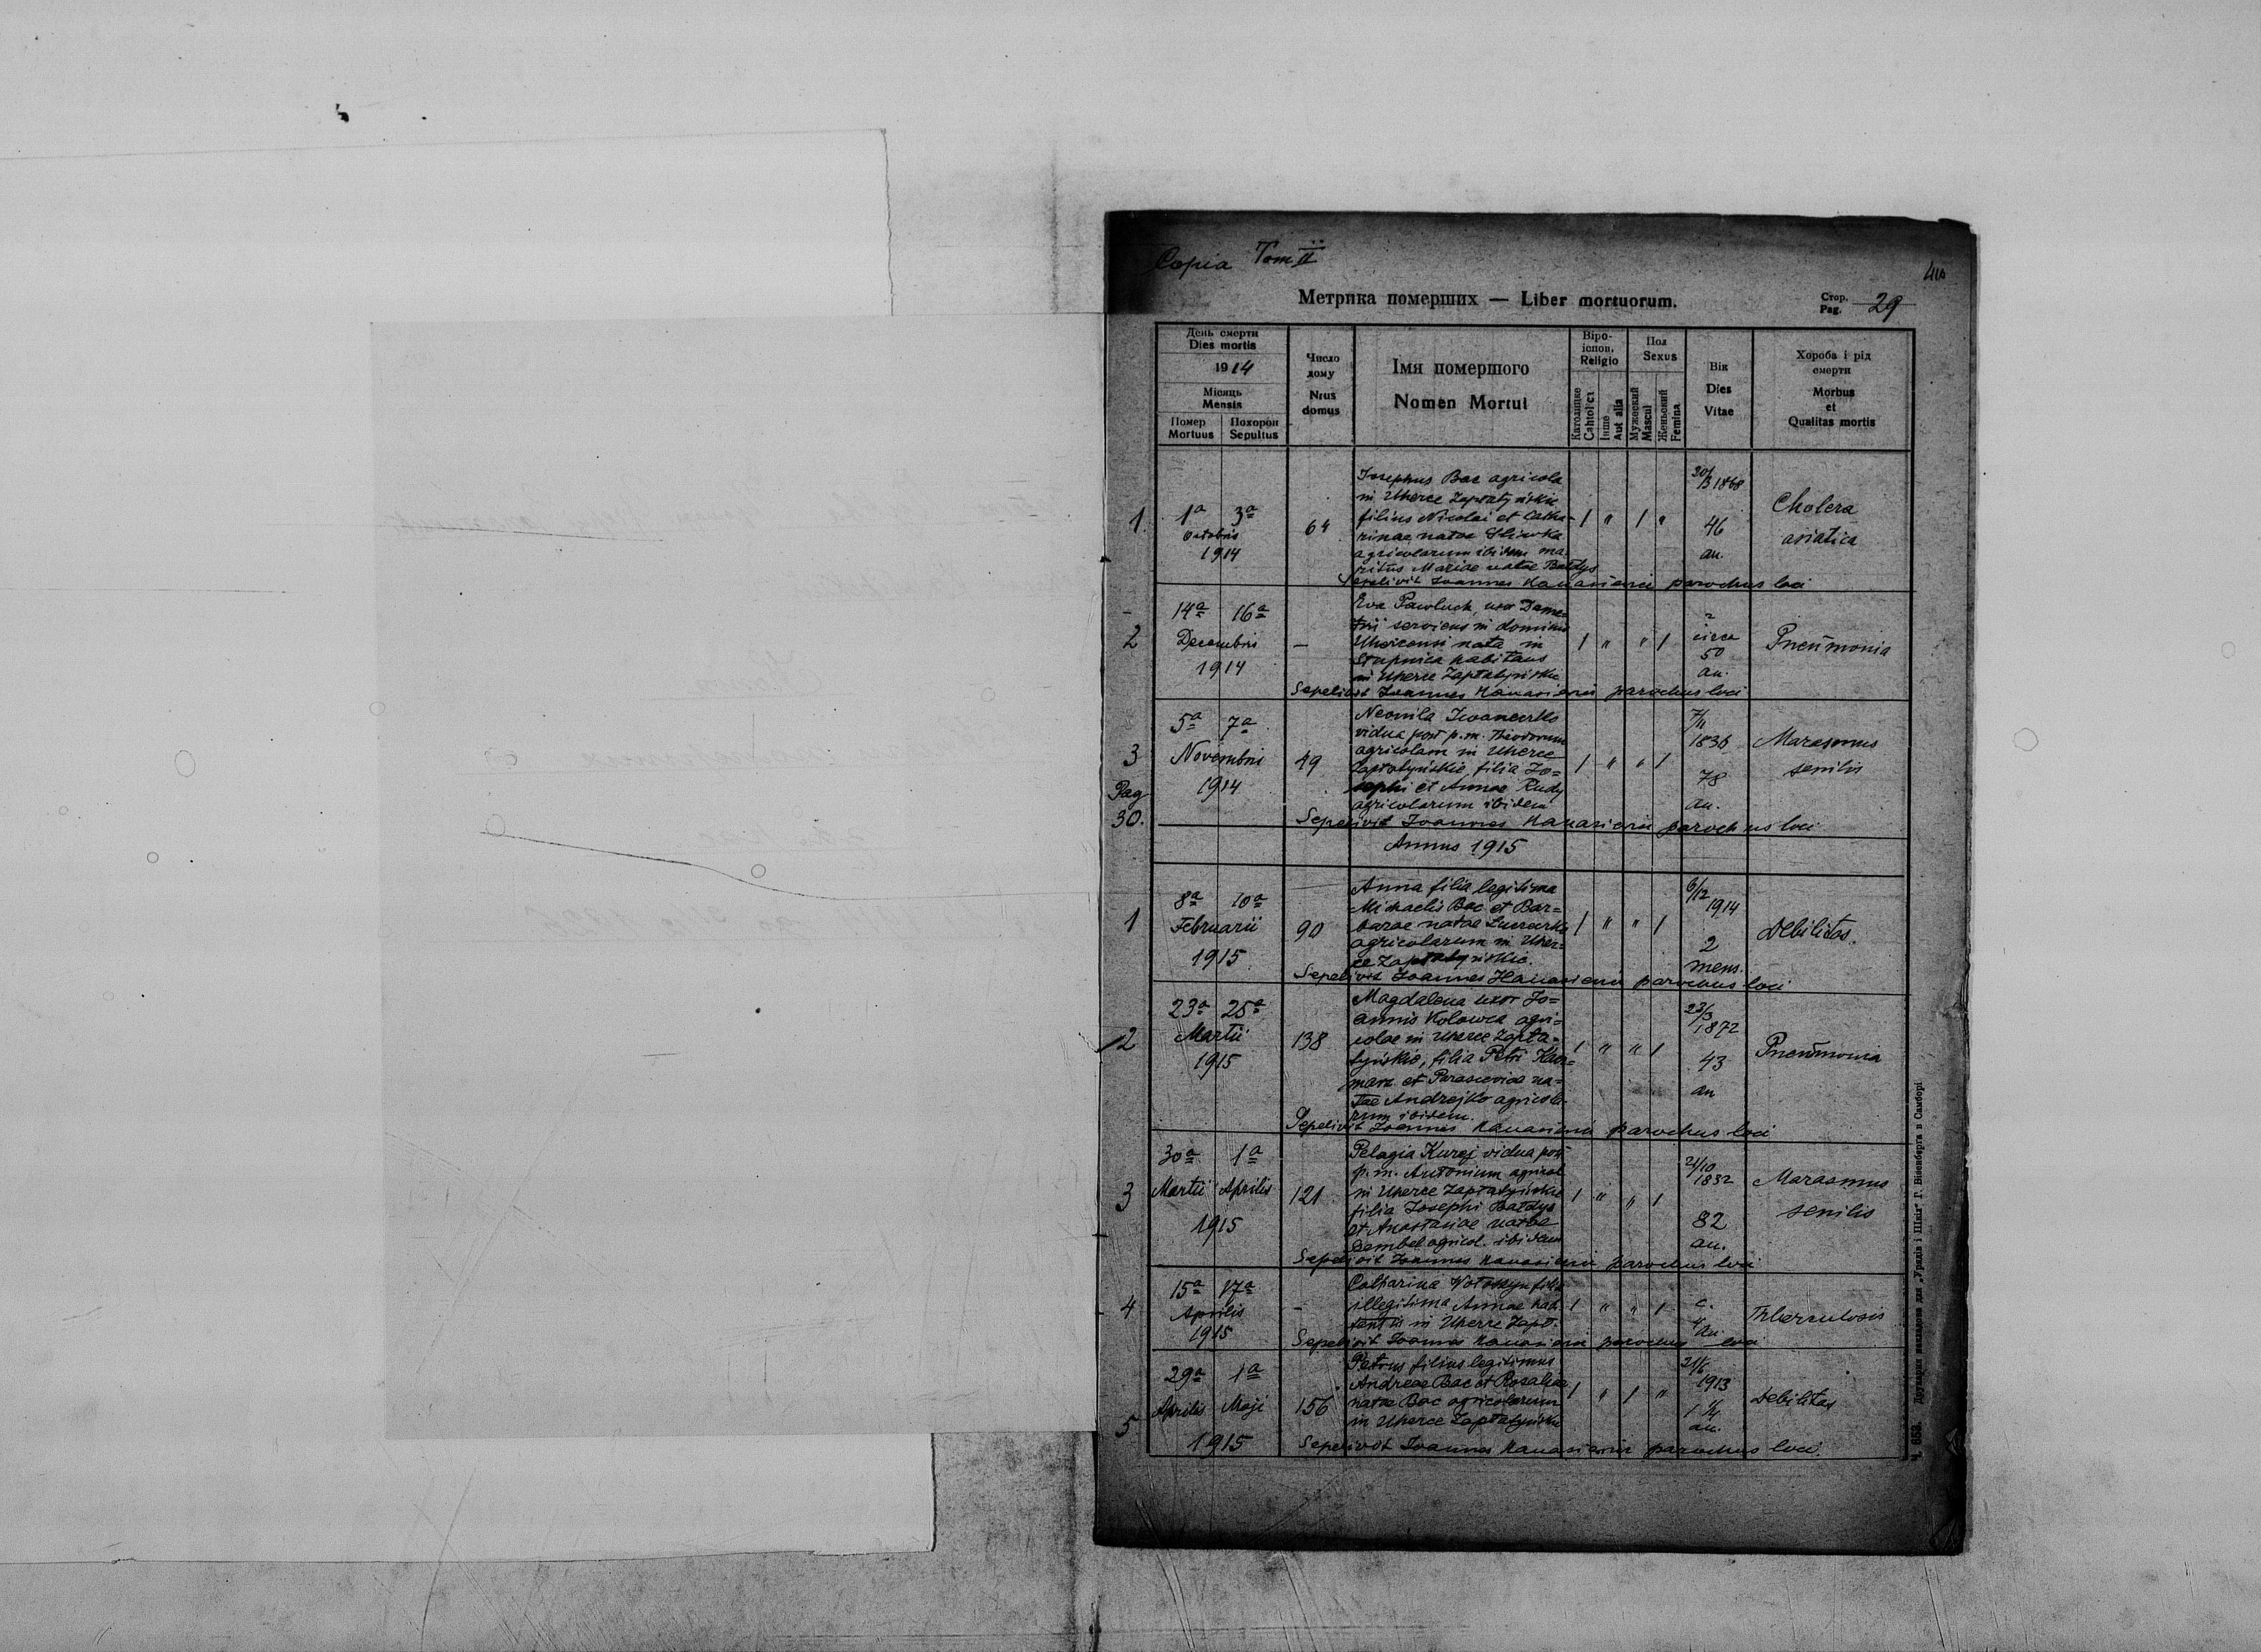 Copia Tom II
410
Метрика померших — Liber mortuorum.
Стор. Pag. 29
День смерти
Dies mortis
1914
Місяць
Mensis
Помер
Mortuus
Похорон
Sepultus
Число
дому
Nrus
domus
Імя помершого
Nomen Mortui
Віро-
ісповід.
Religio
Католицке
Cahtol'cr
Інше
Aut alia
Пол
Sexus
Мужеский
Mascul
Женьский
Femina
Вік
Dies
Vitae
Хороба і рід
смерти
Morbus
et
Qualitas mortis
1.
1a 3a
Octobris
1914
64
Josephus Bac agricola
in Uherce Zapłatyńskie
filius Nicolai et Catha-
rinae natae Śliwka
agricolarum ibidem ma-
ritus Mariae natae Bałdys
1 " 1 "
30/3 1868
46
an.
Cholera
asiatica
Sepelivit Joannes parochus loci
2
14a 16a
Decembris
1914
—
Eva Pawluch, uxor Deme-
trii serviens in dominio
Uhercensi nata in
Stupnica habitans
in Uherce Zapłatyńskie
1 " " 1
?
circa
50
an.
Pneumonia
Sepelivit Joannes parochus loci
3
5a 7a
Novembris
1914
49
Neonila Iwanenko
vidua post p.m. Theodorum
agricolam in Uherce
Zapłatyńskie, filia Jo=
sephi et Annae Rudy
agricolarum ibidem
1 " " 1
7/11
1836
78
an.
Marasmus
senilis
Pag
30.
Sepelivit Joannes parochus loci
Annus 1915
1
8a 10a
Februarii
1915
90
Anna filia legitima
Michaelis Bac et Bar=
barae natae
agricolarum in Uher=
ce Zapłatyńskie.
1 " " 1
6/12
1914
2
mens.
Debilitas.
Sepelivit Joannes parochus loci
2
23a 25a
Martii
1915
138
Magdalena uxor Jo=
annis Kolowca agri=
colae in Uherce Zapła=
tyńskie, filia Petri Kacz=
marz et Parasceviae na=
tae Andrejko agricola-
rum ibidem.
1 " " 1
23/3
1872
43
an
Pneumonia
Sepelivit Joannes parochus loci
3
30a 1a
Martii Aprilis
1915
121
Pelagia Kurej vidua post
p.m. Antonium agricol.
in Uherce Zapłatyńskie
filia Josephi Bałdys
et Anastasiae natae
Dembel agricol. ibidem
1 " " 1
21/10
1832
82
an.
Marasmus
senilis
Sepelivit Joannes parochus loci
4
15a 17a
Aprilis
1915
—
Catharina Wołoszyn filia
illegitima Annae habi-
tantis in Uherce Zapł.
1 " " 1
c.
4
an.
Tuberculosis
Sepelivit Joannes parochus loci
5
29a 1a
Aprilis Maji
1915
156
Petrus filius legitimus
Andreae Bac et Rosaliae
natae Bac agricolarum
in Uherce Zapłatyńskie
1 " 1 "
21/6
1913
1 3/4
an.
Debilitas
Sepelivit Joannes parochus loci.
Ч. 658. Друкарня накладова для „Урядів і Шкіл" Г. Візенберга в Самборі